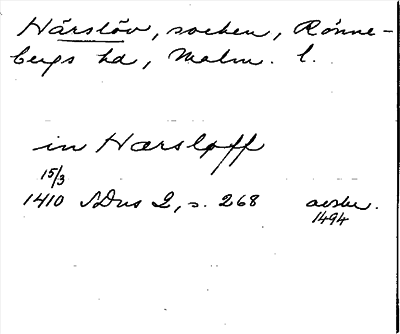 Härslöv, socken, Rönne-
bergs hd, Malm. l.
in Hærsløff
15/3
1410 SDns 2, s. 268 avskr.
1494